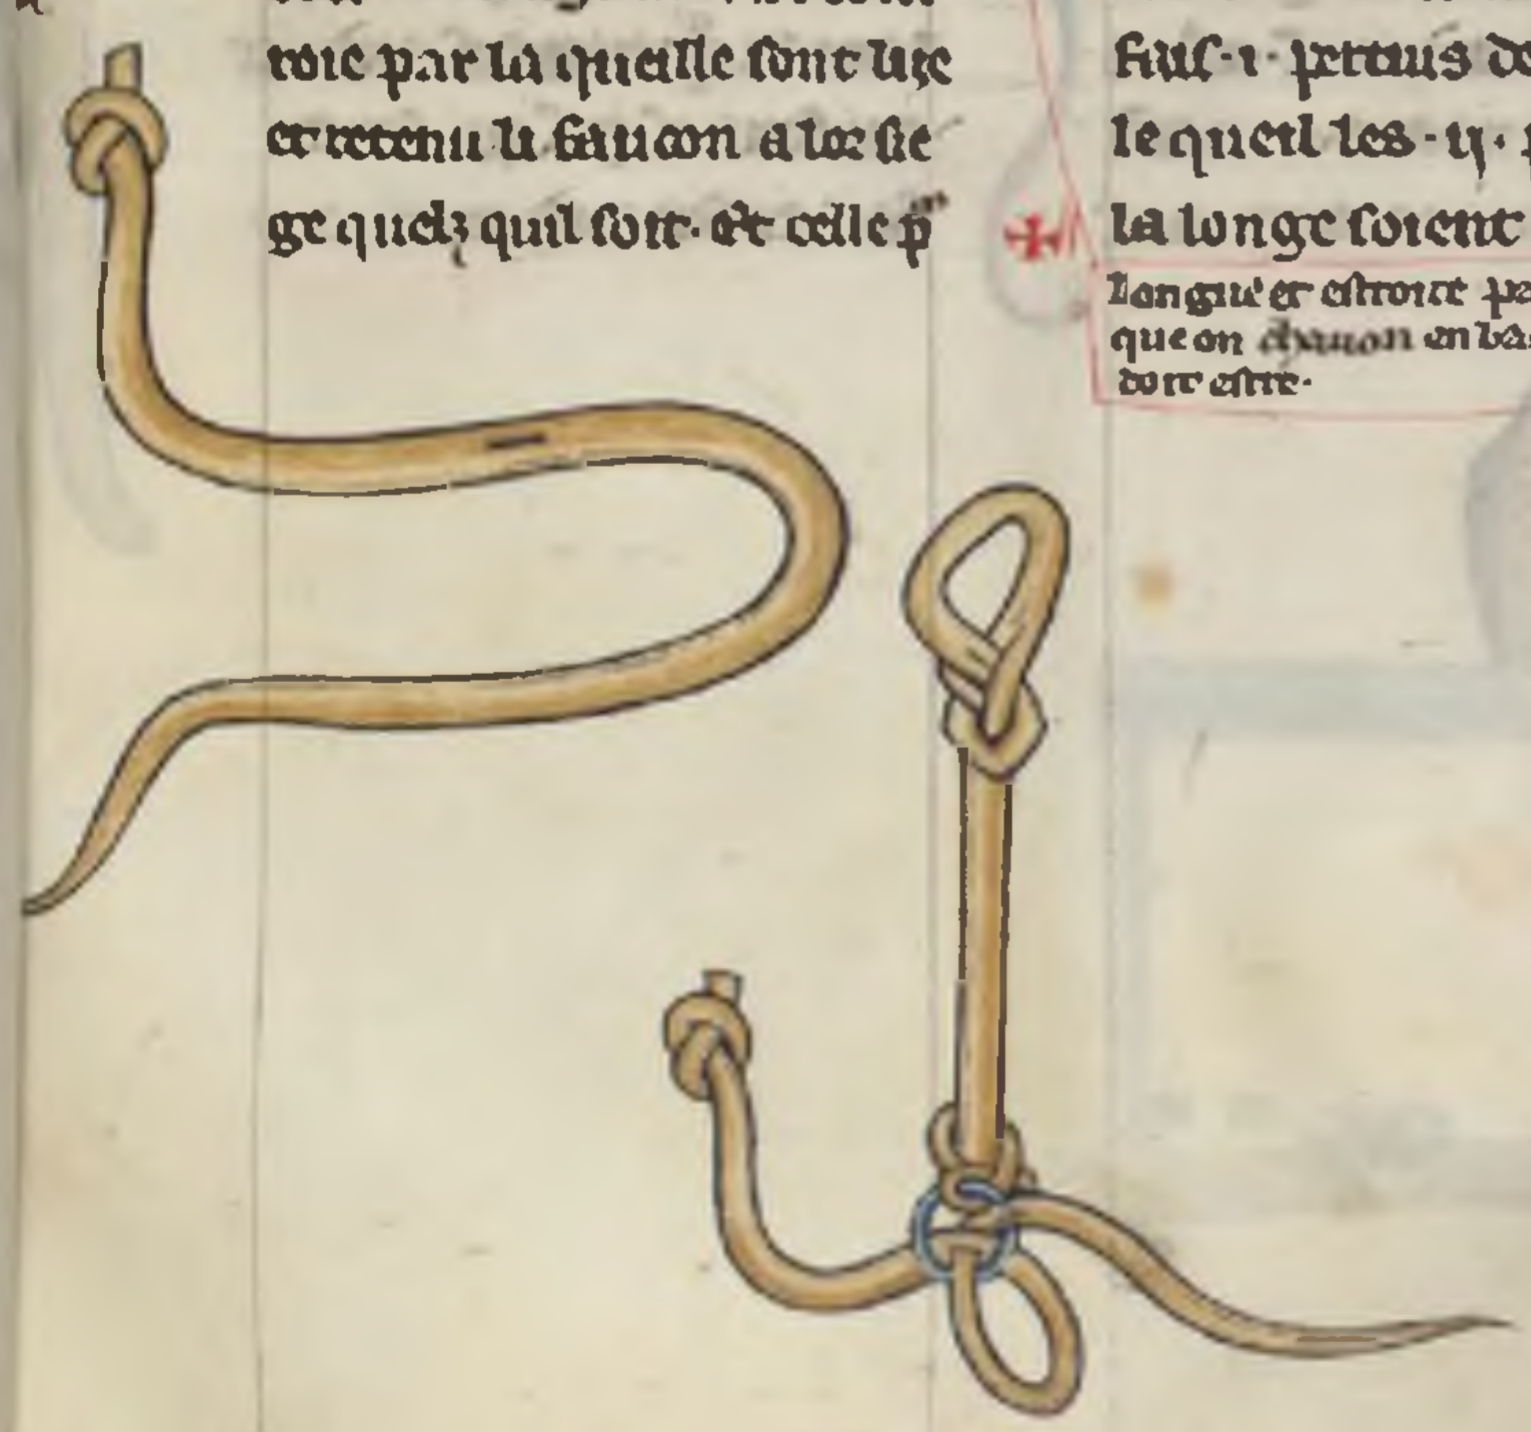 roie par la quielle sont lige
et retenu li faucon a lor sie
ge quelz quil soit. Et celle p
fius .i. pertuis de
le queil les .ij. p
la longe soient
Longue et estroite pa
que on chauon en ba
doit estre.